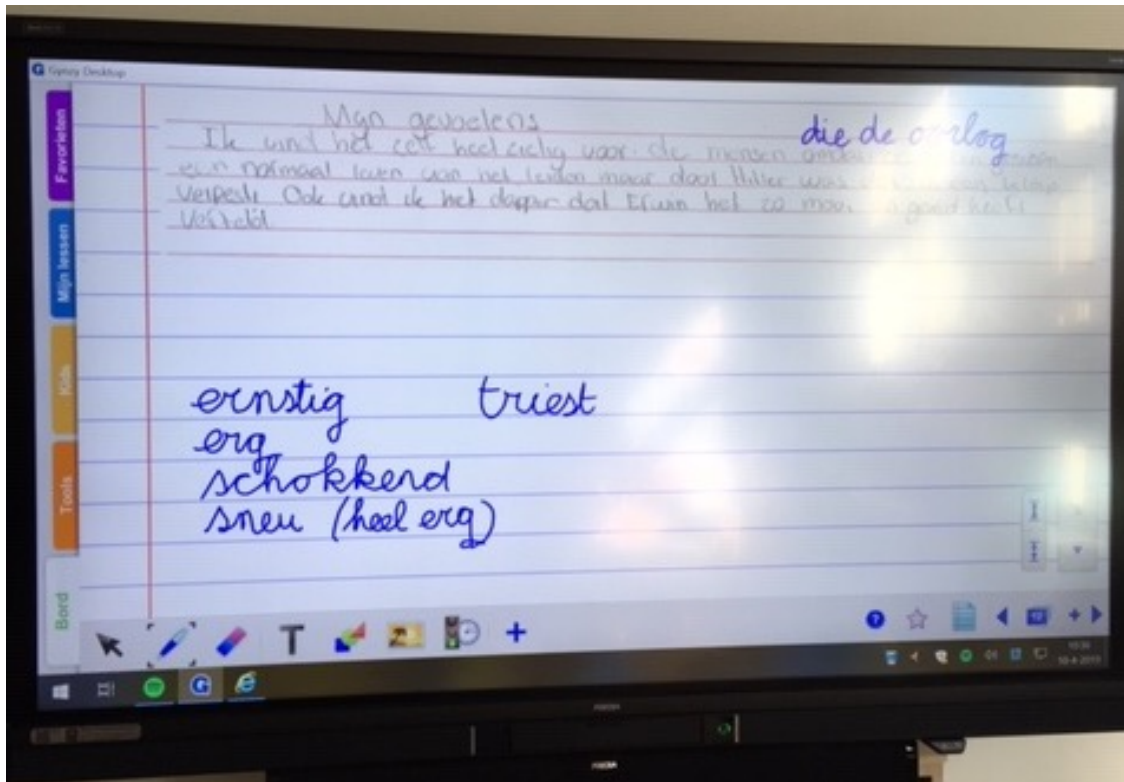 Gynzy Desktop
Favorieten
Mijn lessen
Kids
Tools
Bord
Mijn gevoelens
die de oorlog
Ik vind het echt heel zielig voor de mensen
een normaal leven van het leiden maar door Hitler was
verpest. Ook vindt ik het dapper dat Erwin het zo mooi goed heeft
verteld
ernstig triest
erg
schokkend
sneu (heel erg)
T
10-4-2019